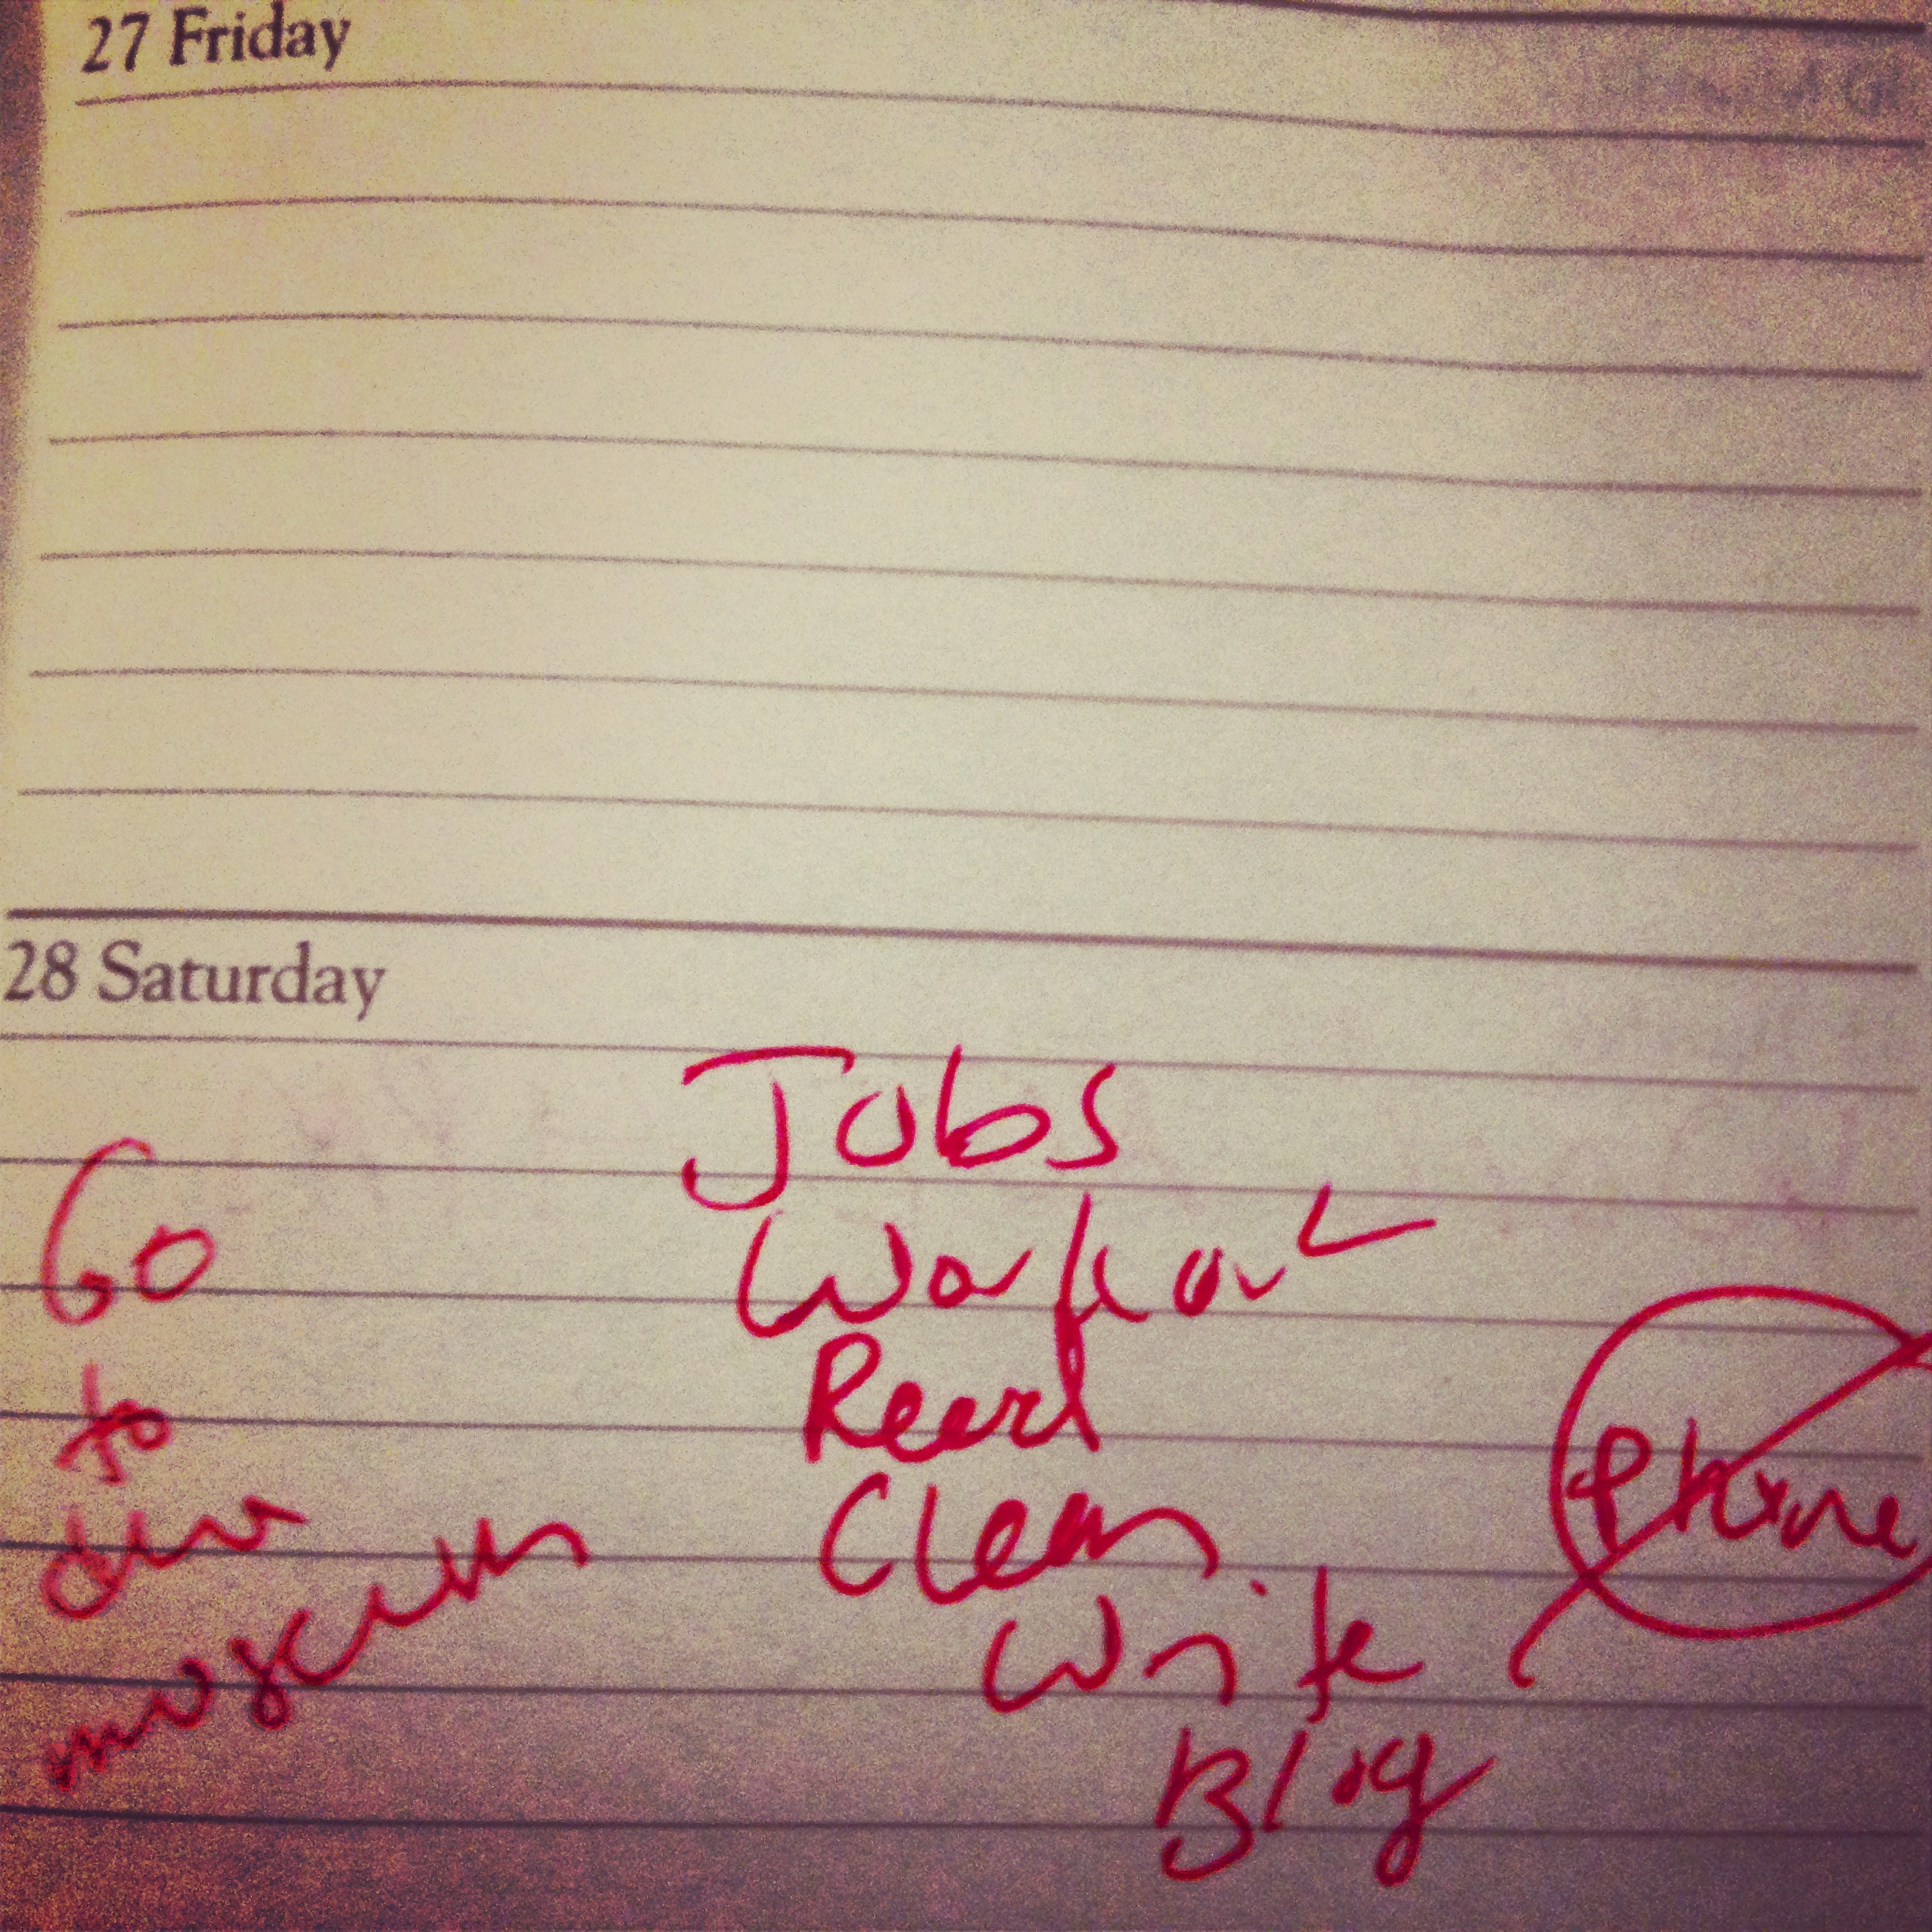 27 Friday
28 Saturday
Jobs
Workout
Read
Clean
Write
Blog
Go
to
museum
Phone